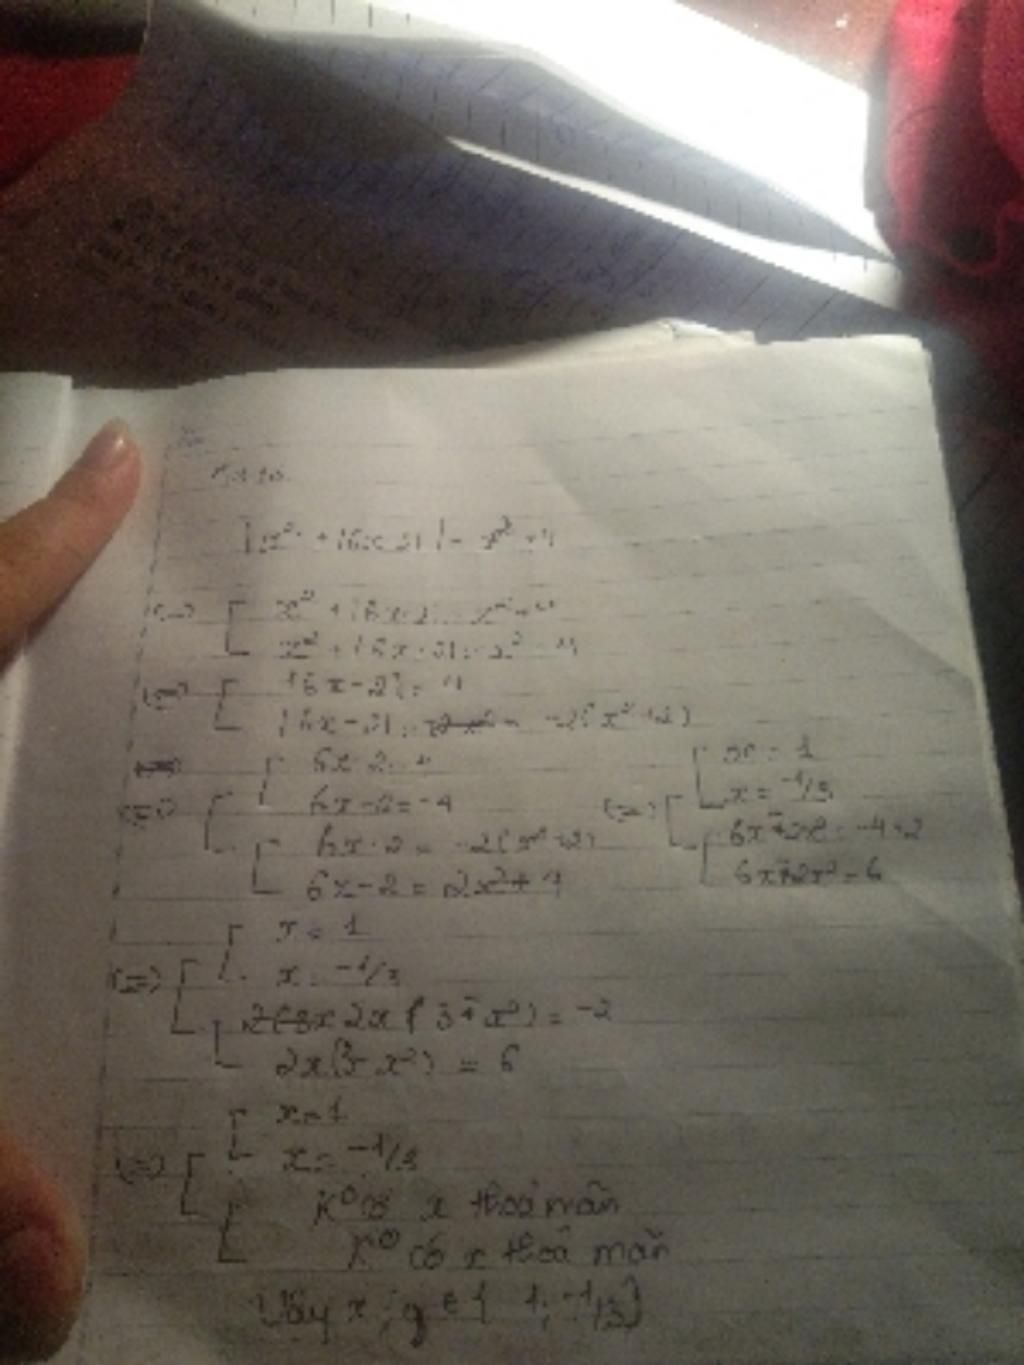 |x² + |6x-2|| = x²+4
(=) x² + |6x-2| = x²+4
x² + |6x-2| = -x²-4
(=) |6x-2| = 4
|6x-2| = -2(x²+2)
6x-2=4
(=) 6x-2=-4
6x-2 = -2(x²+2)
6x-2 = 2x²+4
(=) x = 1
x = -1/3
6x+2x² = -4+2
6x-2x² = 6
(=) x = 1
x = -1/3
2x(3+x²) = -2
2x(3-x²) = 6
(=) x=1
x = -1/3
K⁰ có x thoả mãn
K⁰ có x thoả mãn
Vậy x; y ∈ { 1; -1/3}